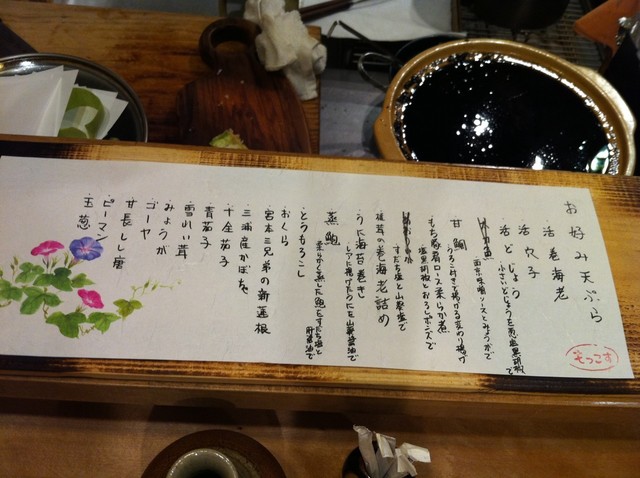 お好み天ぷら
活巻海老
活穴子
活どじょう
小さいどじょうを丸塩黒胡椒で
西京味噌ソースとみょうがで
甘鯛
うろこ付きで揚がる変わり揚げ
もち豚肩ロース柔らか煮
塩黒胡椒とおろしポンズで
すだち塩と山椒塩で
椎茸の巻海老詰め
うに海苔巻き
レアに揚げたうにを山葵醤油で
蒸鮑
柔らかく蒸した鮑をすだち塩と
肝醤油で
とうもろこし
おくら
宮本三兄弟の新蓮根
三浦産かぼちゃ
十全茄子
青茄子
雪れい茸
みょうが
ゴーヤ
甘長しし唐
ピーマン
玉葱